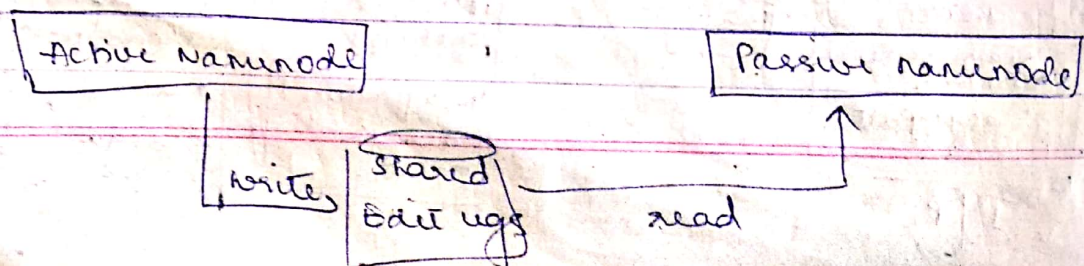 Active Namenode
Passive namenode
write
shared
Edit logs
read